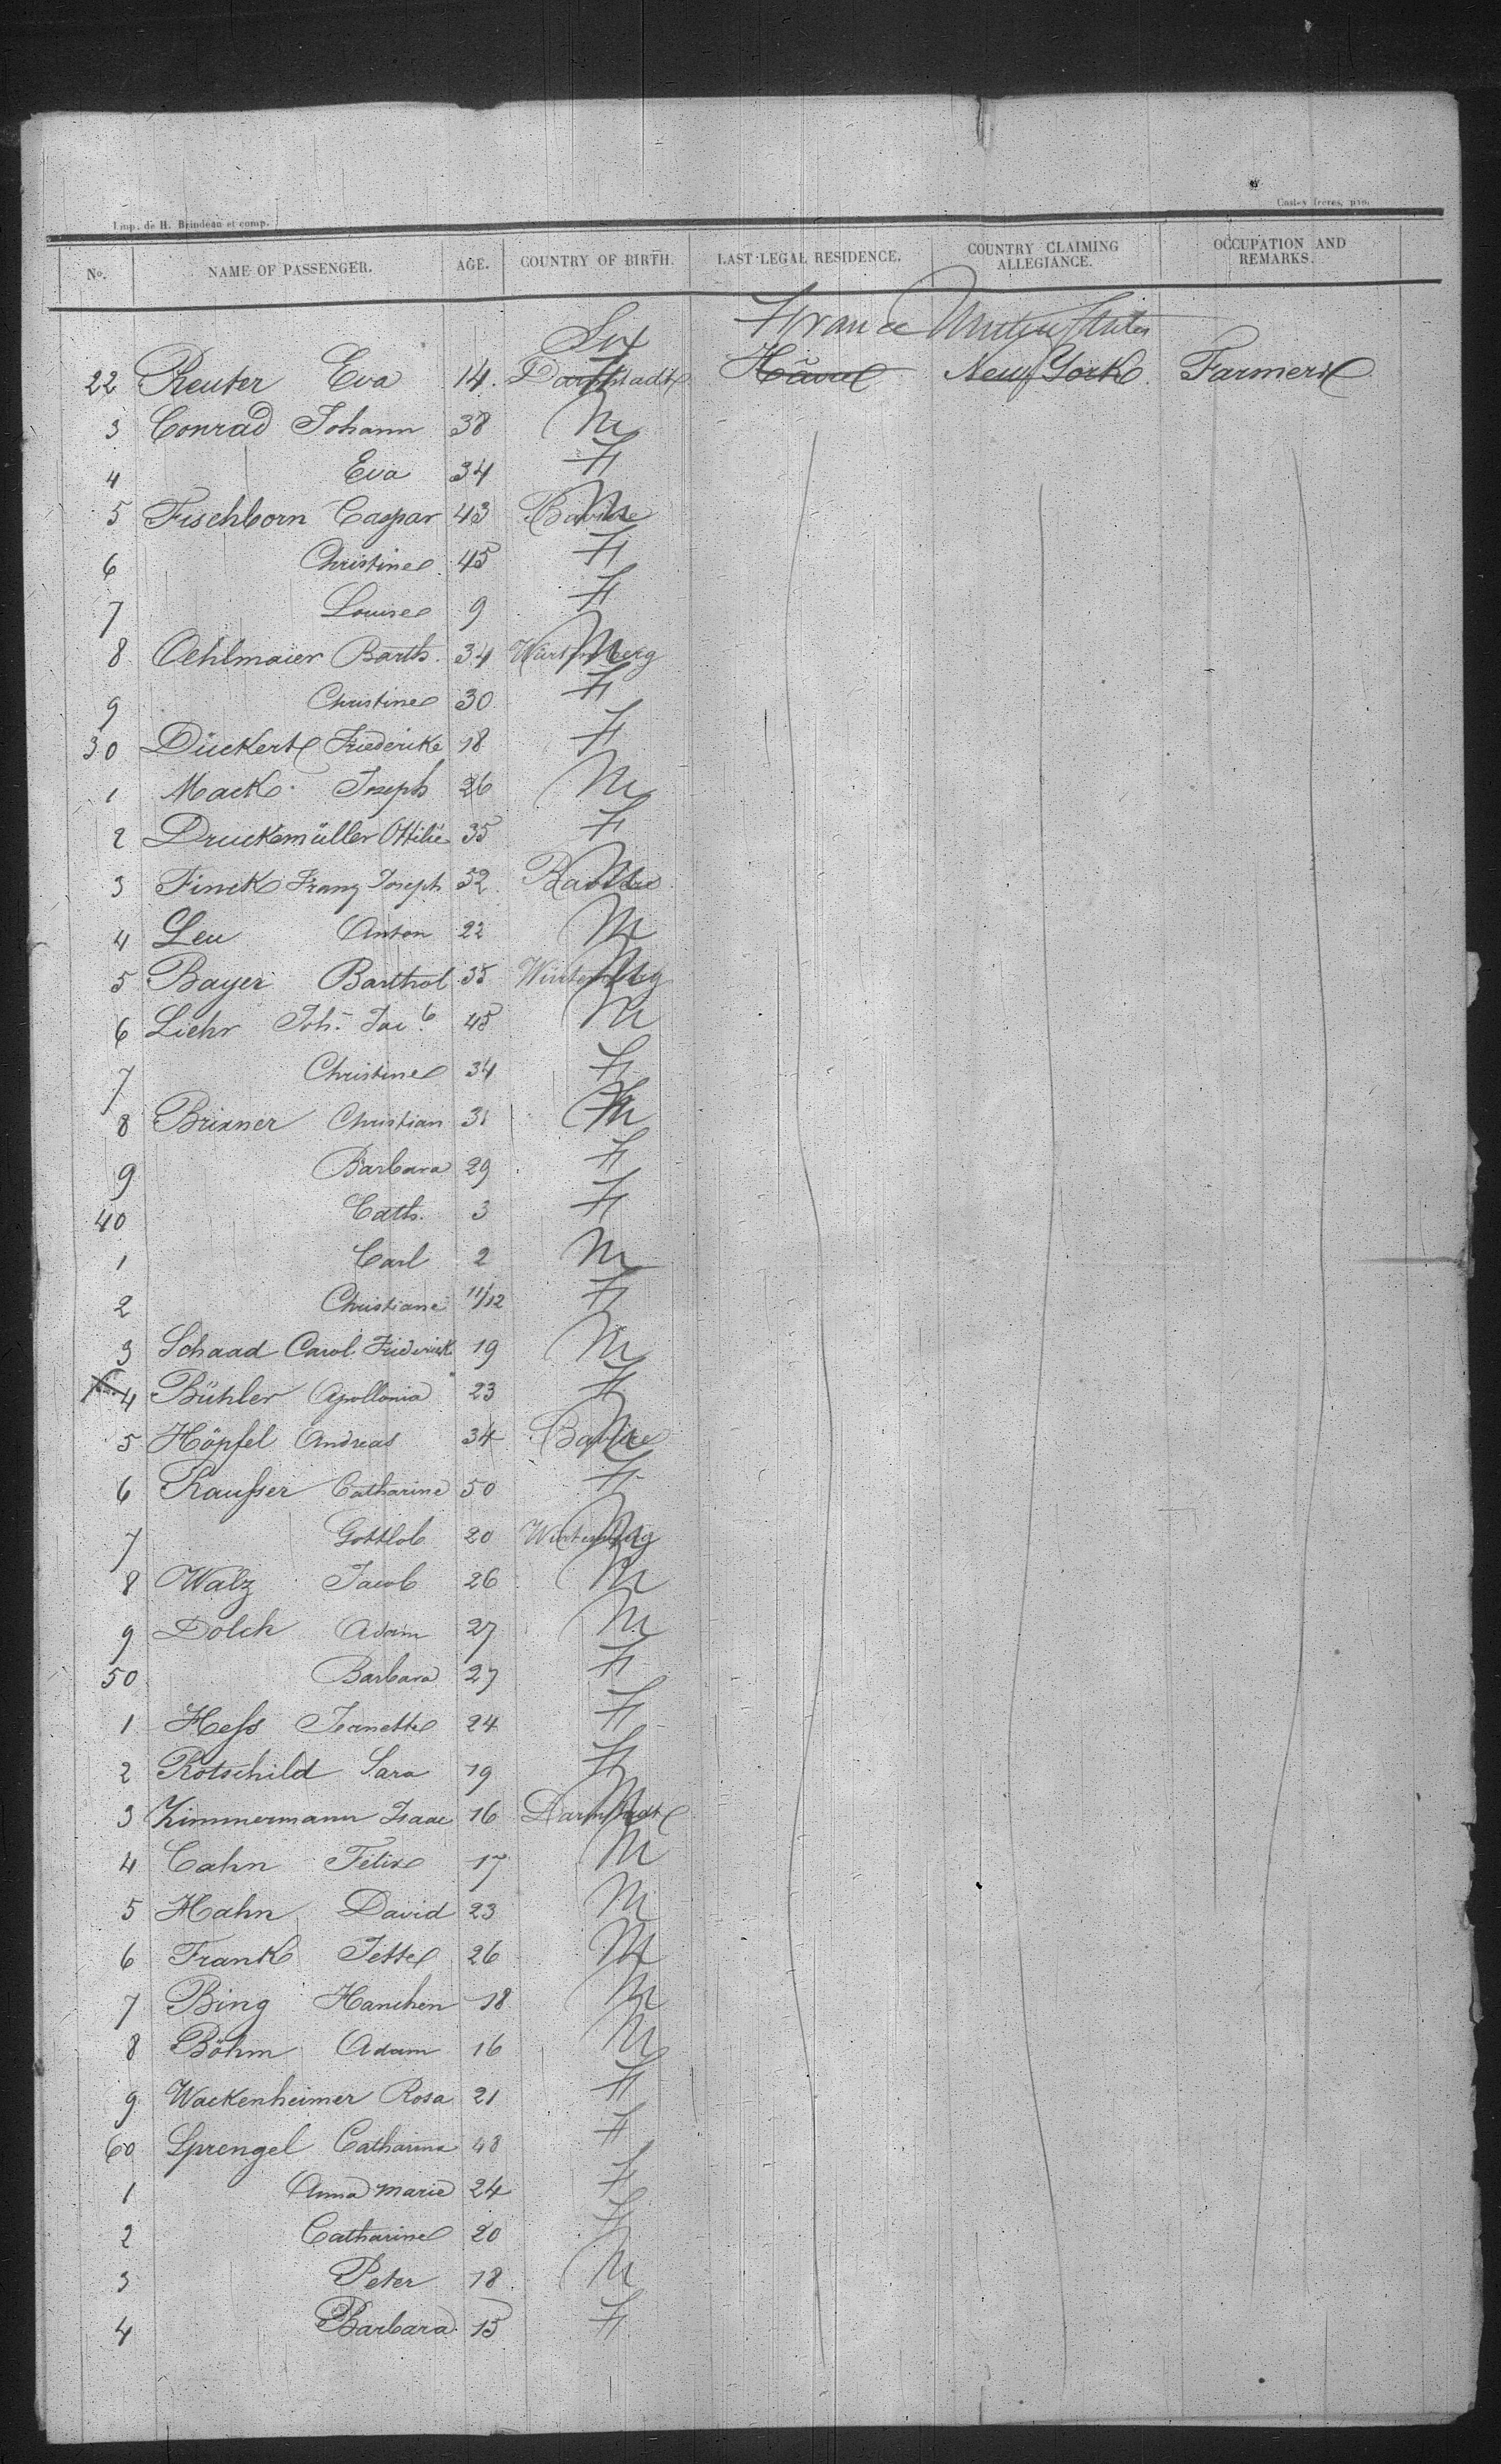 Imp. de H. Brindeau et comp.
No. NAME OF PASSENGER. AGE. COUNTRY OF BIRTH. LAST LEGAL RESIDENCE. COUNTRY CLAIMING ALLEGIANCE. OCCUPATION AND REMARKS.
Sex France United States
22 Reuter Eva 14. Darmstadt F Hâvre New York Farmers
3 Conrad Johann 38 M
4 Eva 34 F
5 Fischborn Caspar 43 Bavière M
6 Christine 45 F
7 Louise 9 F
8 Oehlmaier Barth. 34 Würtemberg M
9 Christine 30 F
30 Dückert Friederike 18 F
1 Mack Joseph 26 M
2 Druckemüller Ottilie 35 F
3 Finck Franz Joseph 52 Bavière M
4 Leu Anton 22 M
5 Bayer Barthol 35 Würtemberg M
6 Liehr Joh. Jac. 45 M
7 Christine 34 F
8 Brixner Christian 31 M
9 Barbara 29 F
40 Cath. 3 F
1 Carl 2 M
2 Christiane 11/12 F
3 Schaad Carol. Friederick 19 M
4 Bühler Apollonia 23 F
5 Höpfel Andreas 34 Bavière M
6 Kausser Catharine 50 F
7 Gottlob 20 Würtemberg M
8 Walz Jacob 26 M
9 Dolch Adam 27 M
50 Barbara 27 F
1 Hess Jeanette 24 F
2 Rotschild Sara 19 F
3 Zimmermann Isaac 16 Darmstadt M
4 Cahn Felix 17 M
5 Hahn David 23 M
6 Frank Jette 26 M
7 Bing Hanchen 18 M
8 Böhm Adam 16 M
9 Wackenheimer Rosa 21 F
60 Sprengel Catharina 48 F
1 Anna Marie 24 F
2 Catharine 20 F
3 Peter 18 M
4 Barbara 15 F